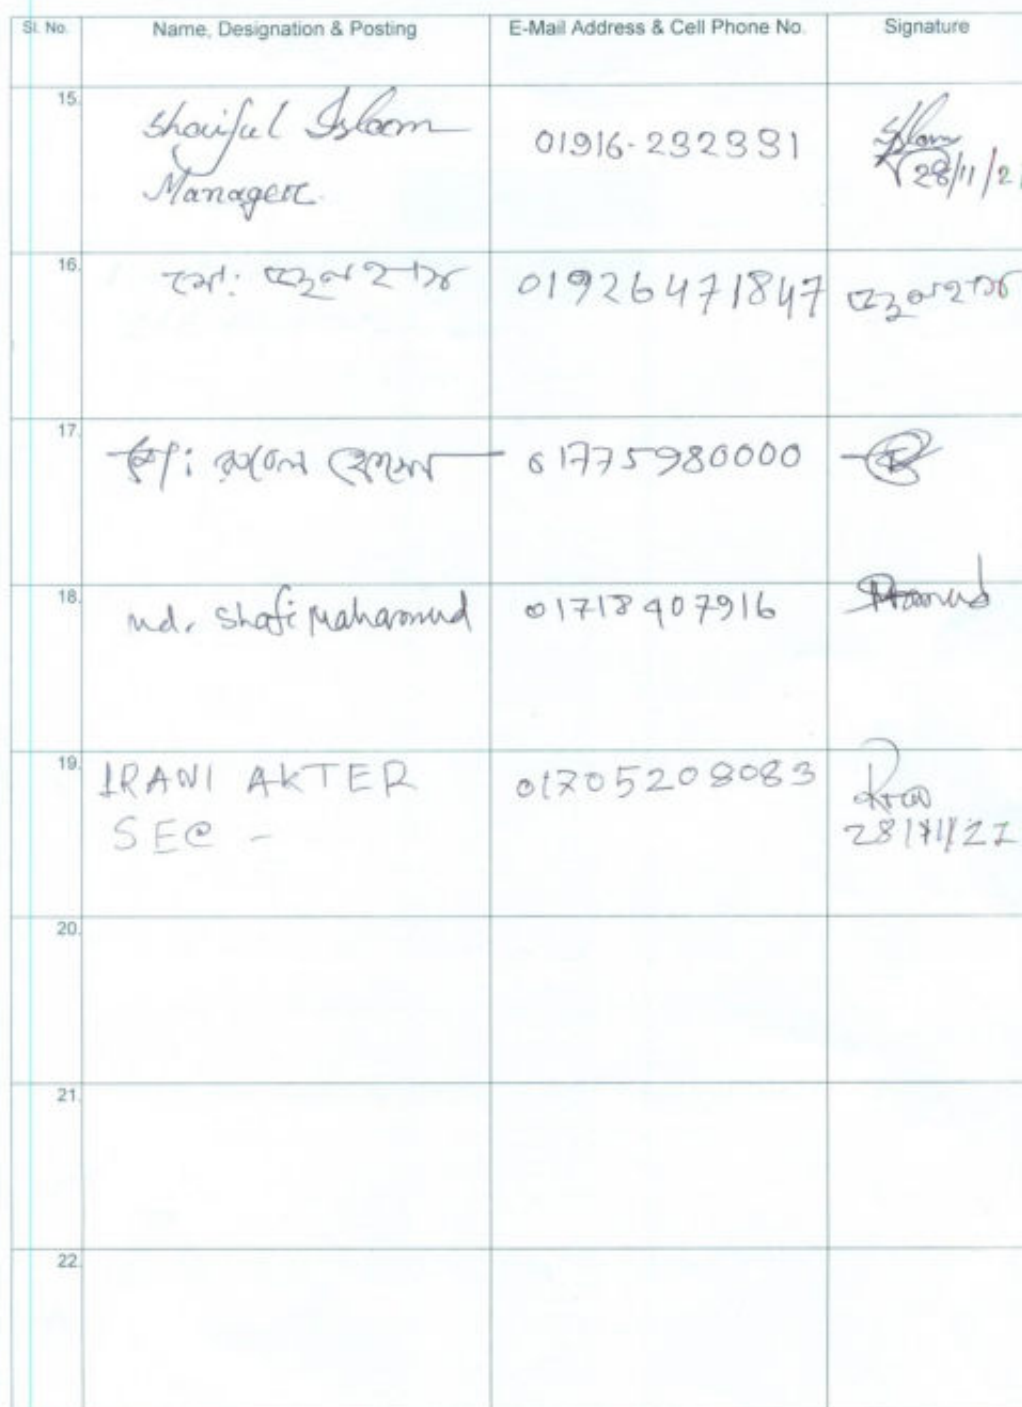 Sl. No. Name, Designation & Posting E-Mail Address & Cell Phone No. Signature
15. Shaiful Islam 01916-232331
Manager. 28/11/2
16. মো: 01926471847
17. মো: হোসেন 01775980000
18. Md. Shafi Mahamud 01718407916
19. IRANI AKTER 01705208083
SEC - 28/11/22
20.
21.
22.